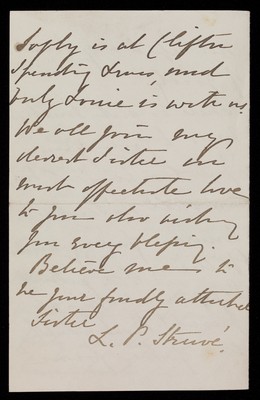 Sophy is at Clifton
spending Xmas, and
only Louie is with us.
We all join my
dearest Sister in
most affectionate love
to you also wishing
you every blessing.
Believe me to
be your fondly attached
Sister
L. P. Struvé